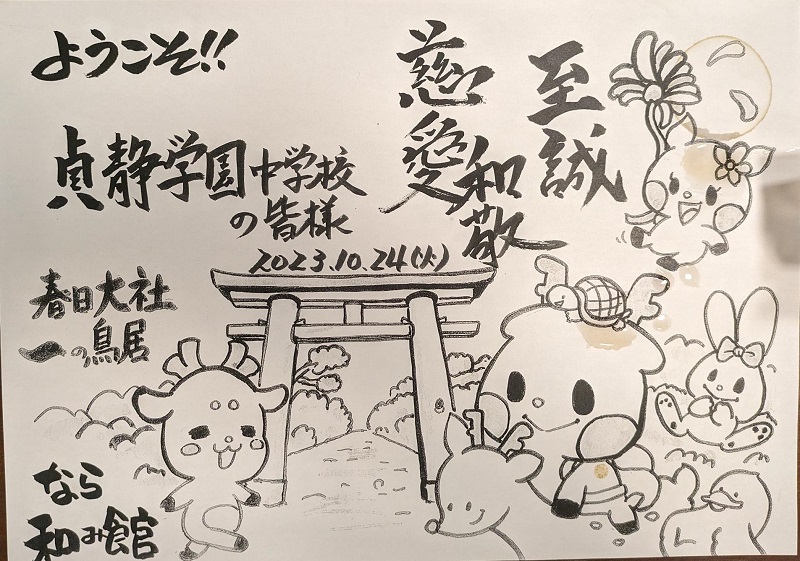 ようこそ!!
貞静学園中学校
の皆様
2023.10.24(火)
至誠
慈愛
和敬
春日大社
一の鳥居
なら
和み館